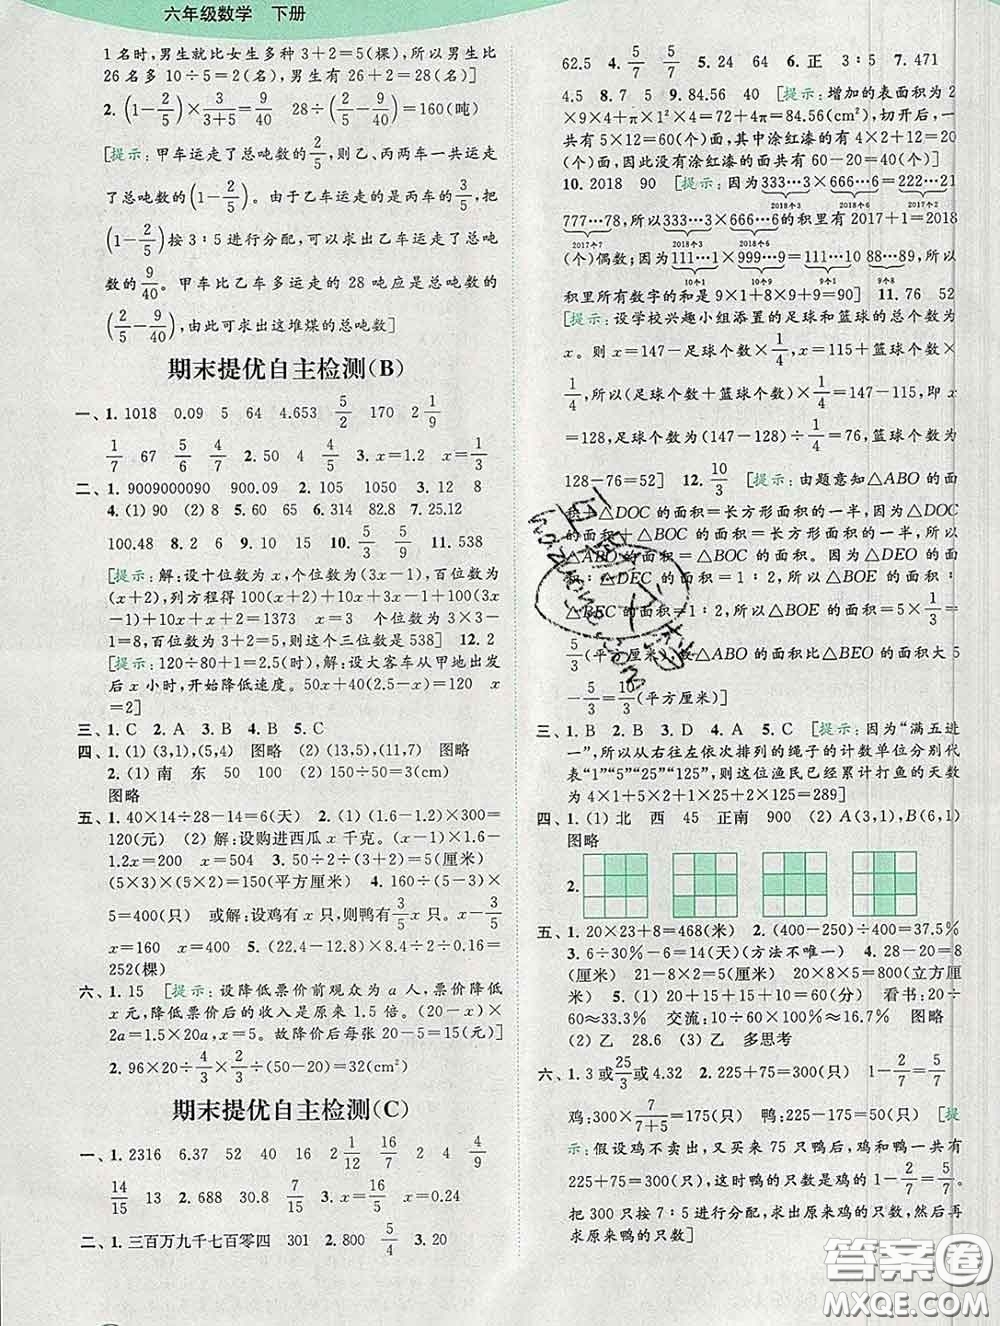 六年级数学　下册
1名时,男生就比女生多种3+2=5(棵),所以男生比
26名多10÷5=2(名),男生有26+2=28(名)]
2. (1-2/5)×3/(3+5)=9/40　28÷(2/5-9/40)=160(吨)
[提示:甲车运走了总吨数的2/5,则乙、丙两车一共运走
了总吨数的(1-2/5)。由于乙车运走的是丙车的3/5,把
(1-2/5)按3∶5进行分配,可以求出乙车运走了总吨
数的9/40。甲车比乙车多运走的28吨应是总吨数的
(2/5-9/40),由此可求出这堆煤的总吨数]
期末提优自主检测(B)
一、1. 1018　0.09　5　64　4.653　5/2　170　2 1/9
1/7　67　5/6　4/7　2. 50　4　4/5　3. x=1.2　x=1/3
二、1. 9009000090　900.09　2. 105　1050　3. 12　8
4. (1) 90　(2) 8　5. 60　65　6. 135　8　7. 25.12
100.48　8. 2　6　9. 10　15　10. 5/3　5/9　11. 538
[提示:解:设十位数为x,个位数为(3x-1),百位数为
(x+2),列方程得100(x+2)+10x+3x-1+100(3x-
1)+10x+x+2=1373　x=3　个位数为3×3-
1=8,百位数为3+2=5,则这个三位数是538]　12. 2
[提示:120÷80+1=2.5(时),解:设大客车从甲地出发
后x小时,开始降低速度。50x+40(2.5-x)=120　x
=2]
三、1. C　2. A　3. B　4. B　5. C
四、1. (1) (3,1),(5,4)　图略　(2) (13,5),(11,7)　图略
2. (1) 南　东　50　100　(2) 1200÷400=3(cm)
图略
五、1. 40×14÷28-14=6(天)　2. (1) (1.6-1.2)×300=
120(元)　(2) 解:设购进西瓜x千克。(x-x×1)×1.6-
1.2x=200　x=504　3. 50÷2÷(3+2)=5(厘米)
(5×3)×(5×2)=150(平方厘米)　4. 160÷(5-3)×
5=400(只)　或解:设鸡有x只,则鸭有3/5x只。x-3/5
x=160　x=400　5. (22.4-12.8)×8.4÷(1.2-0.16=
252(棵)
六、1. 15　[提示:设降低票价前观众为a人,票价降低
x元,降低票价后的收入是原来1.5倍。(20-x)×
2a=1.5×20a,x=5。故降价后每张20-5=15(元)]
2. 96×20÷4/3×2/3÷(50-20)=32(cm²)
期末提优自主检测(C)
一、1. 2316　6.37　52　40　16　2 1/12　16/7　2　4　4/9
14/15　13　2. 688　30.8　7/15　3. x=16/5　x=0.24
二、1. 三百万九千七百零四　301　2. 800　5/4　3. 20
62.5　4. 5/7　5/7　5. 24　64　6. 正　3∶5　7. 471
4.5　8. 7　5　9. 84.56　40　[提示:增加的表面积为2
×9×4+π×1²×4=72+4π=84.56(cm²),切开后,一
共有5×12=60(个)面,其中涂红漆的有4×2+12=20
(个)面,因此没有涂红漆的面共有60-20=40(个)]
10. 2018　90　[提示:因为333…3×666…6=222…21
2018个3　2018个6
777…78,所以333…3×666…6的积里有2017+1=2018
2017个7　2018个3　2018个6
(个)偶数;因为111…1×999…9=111…10 88…89,所以
10个1　10个9　9个1　9个8
积里所有数字的和是9×1+8×9+9=90]　11. 76　52
[提示:设学校兴趣小组添置的足球和篮球的总个数为
x。则x=147-足球个数×1/4,x=115+篮球个数×
1/4,所以(足球个数+篮球个数)×1/4=147-115,即x
=128,足球个数为(147-128)÷1/4=76,篮球个数为
128-76=52]　12. 10/3　[提示:由题意知△ABO的面
积+△DOC的面积=长方形面积的一半,因为△DOC
的面积+△BOC的面积=长方形面积的一半,所以
△ABO的面积=△BOC的面积。因为△DEO的面
积∶△DEC的面积=1∶2,所以△BOE的面积
∶△BEC的面积=1∶2,所以△BOE的面积=5×1/3=
5/3(平方厘米),故△ABO的面积比△BEO的面积大5
-5/3=10/3(平方厘米)]
三、1. B　2. B　3. D　4. A　5. C　[提示:因为“满五进
一”,所以从右往左依次排列的绳子的计数单位分别代
表“1”“5”“25”“125”,则这位渔民已经累计打鱼的天数
为4×1+5×2+1×25+2×125=289]
四、1. (1) 北　西　45　正南　900　(2) A(3,1),B(6,1)
图略
2.
五、1. 20×23+8=468(米)　2. (400-250)÷400=37.5%
3. 6÷30%-6=14(天)(方法不唯一)　4. 28-20=8
(厘米)　21-8×2=5(厘米)　20×5×8=800(立方厘
米)　5. (1) 20+15+15+10=60(分)　看书:20÷
60≈33.3%　交流:10÷60≈16.7%　图略
(2) 乙　28.6　(3) 乙　多思考
六、1. 3或25/3或4.32　2. 225+75=300(只)　1-2/7=5/7
鸡:300×7/(7+5)=175(只)　鸭:225-175=50(只)　[提
示:假设鸡不卖出,又买来75只鸭后,鸡和鸭一共有
225+75=300(只),这时鸭的只数是鸡的1-2/7=5/7。
把300只按7∶5进行分配,求出原来鸡的只数,然后再
求原来鸭的只数]
答案圈
MXQE.COM